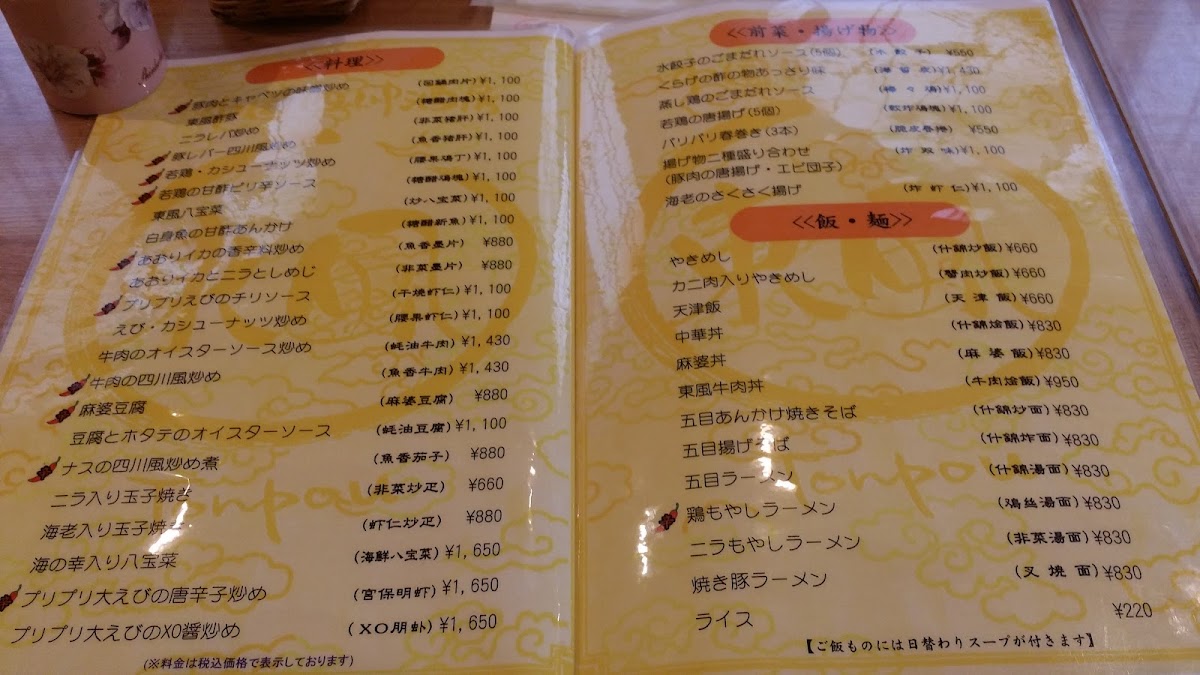 <<料理>>
豚肉とキャベツの味噌炒め (回鍋肉片) ¥1,100
東風酢豚 (糖醋肉塊) ¥1,100
ニラレバ炒め (韮菜猪肝) ¥1,100
豚レバー四川風炒め (魚香猪肝) ¥1,100
若鶏・カシューナッツ炒め (腰果鶏丁) ¥1,100
若鶏の甘酢ピリ辛ソース (糖醋鶏塊) ¥1,100
東風八宝菜 (炒八宝菜) ¥1,100
白身魚の甘酢あんかけ (糖醋新魚) ¥1,100
あおりイカの香辛料炒め (魚香墨片) ¥880
あおりイカとニラとしめじ (韮菜墨片) ¥880
プリプリえびのチリソース (干焼虾仁) ¥1,100
えび・カシューナッツ炒め (腰果虾仁) ¥1,100
牛肉のオイスターソース炒め (蚝油牛肉) ¥1,430
牛肉の四川風炒め (魚香牛肉) ¥1,430
麻婆豆腐 (麻婆豆腐) ¥880
豆腐とホタテのオイスターソース (蚝油豆腐) ¥1,100
ナスの四川風炒め煮 (魚香茄子) ¥880
ニラ入り玉子焼き (韮菜炒疋) ¥660
海老入り玉子焼き (虾仁炒疋) ¥880
海の幸入り八宝菜 (海鮮八宝菜) ¥1,650
プリプリ大えびの唐辛子炒め (宮保明虾) ¥1,650
プリプリ大えびのXO醤炒め (XO朋) ¥1,650
(※料金は税込価格で表示しております)
<<前菜・揚げ物>>
水餃子のごまだれソース(5個) (水餃子) ¥550
くらげの酢の物あっさり味 ¥1,430
蒸し鶏のごまだれソース ¥1,100
若鶏の唐揚げ(5個) (軟炸鶏塊) ¥1,100
パリパリ春巻き(3本) (脆皮春捲) ¥550
揚げ物二種盛り合わせ (炸双味) ¥1,100
(豚肉の唐揚げ・エビ団子)
海老のさくさく揚げ (炸虾仁) ¥1,100
<<飯・麺>>
やきめし (什錦炒飯) ¥660
カニ肉入りやきめし (蟹肉炒飯) ¥660
天津飯 (天津飯) ¥660
中華丼 (什錦燴飯) ¥830
麻婆丼 (麻婆飯) ¥830
東風牛肉丼 (牛肉燴飯) ¥950
五目あんかけ焼きそば (什錦炒面) ¥830
五目揚げそば (什錦炸面) ¥830
五目ラーメン (什錦湯面) ¥830
鶏もやしラーメン (鶏絲湯面) ¥830
ニラもやしラーメン (韮菜湯面) ¥830
焼き豚ラーメン (叉焼面) ¥830
ライス ¥220
【ご飯ものには日替わりスープが付きます】